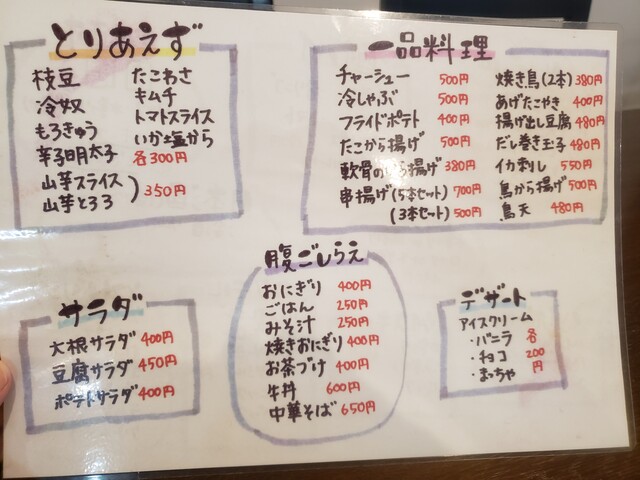 とりあえず
枝豆 たこわさ
冷奴 キムチ
もろきゅう トマトスライス
辛子明太子 いか塩から
各300円
山芋スライス
山芋とろろ ) 350円
一品料理
チャーシュー 500円
冷しゃぶ 500円
フライドポテト 400円
たこから揚げ 500円
軟骨のから揚げ 380円
串揚げ(5本セット) 700円
(3本セット) 500円
焼き鳥(2本) 380円
あげたこやき 400円
揚げ出し豆腐 480円
だし巻き玉子 480円
イカ刺し 550円
鳥から揚げ 500円
鳥天 480円
サラダ
大根サラダ 400円
豆腐サラダ 450円
ポテトサラダ 400円
腹ごしらえ
おにぎり 400円
ごはん 250円
みそ汁 250円
焼きおにぎり 400円
お茶づけ 400円
牛丼 600円
中華そば 650円
デザート
アイスクリーム
・バニラ 各
・チョコ 200
・まっちゃ 円